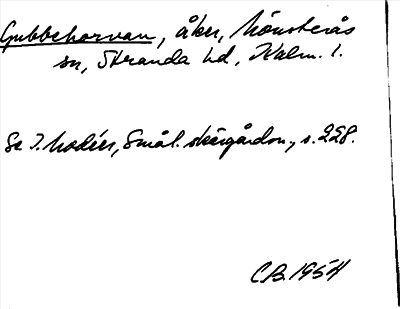 Gubbehorvan, åker, Mönsterås
sn, Stranda hd, Kalm. l.
Se I. Modéer, Smål. skärgårdsn., s. 228.
C.B. 1954